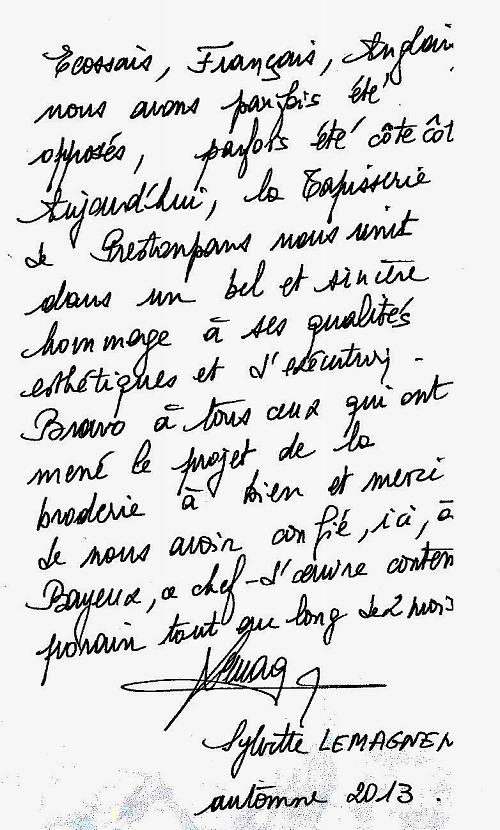 Ecossais, Français, Anglais
nous avons parfois été
opposés, parfois été côte côt
Aujourd'hui, la Tapisserie
de Prestonpans nous unit
dans un bel et sincère
hommage à ses qualités
esthétiques et d'exécution.
Bravo à tous ceux qui ont
mené le projet de la
broderie à bien et merci
de nous avoir confié, ici, à
Bayeux, ce chef-d'œuvre contem
porain tout au long de 2 mois
Sylvette LEMAGNEN
automne 2013.